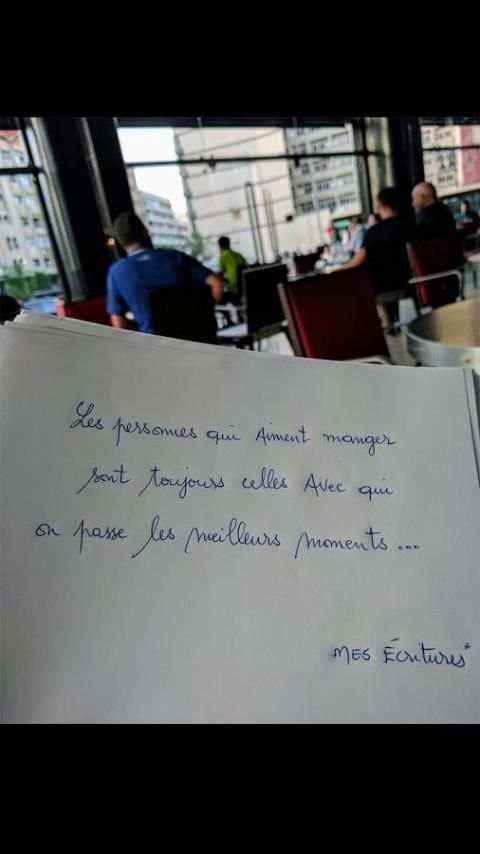 Les personnes qui Aiment manger
sont toujours celles Avec qui
on passe les meilleurs moments...
MES Écritures*